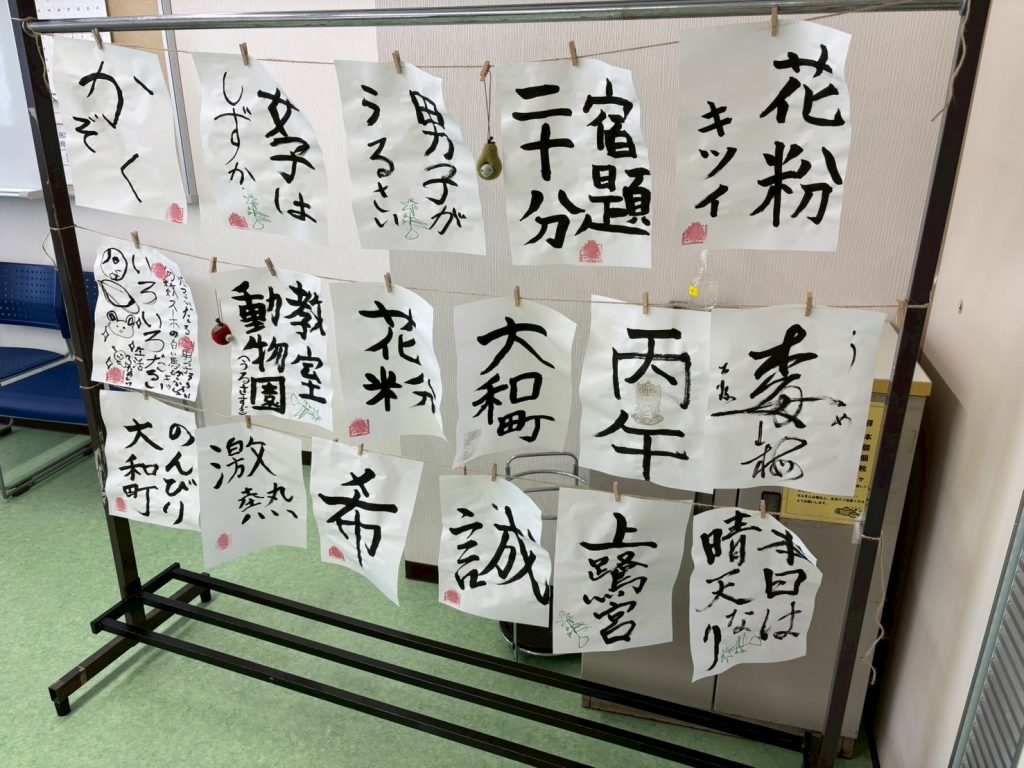 かぞく
女子は
しずか
男子が
うるさい
宿題
二十分
花粉
キツイ
いろいろ
教室
動物園
(うるさすぎ)
花粉
大和町
丙午
うめ
梅
のんびり
大和町
激熱
希
誠
上鷺宮
本日は
晴天なり